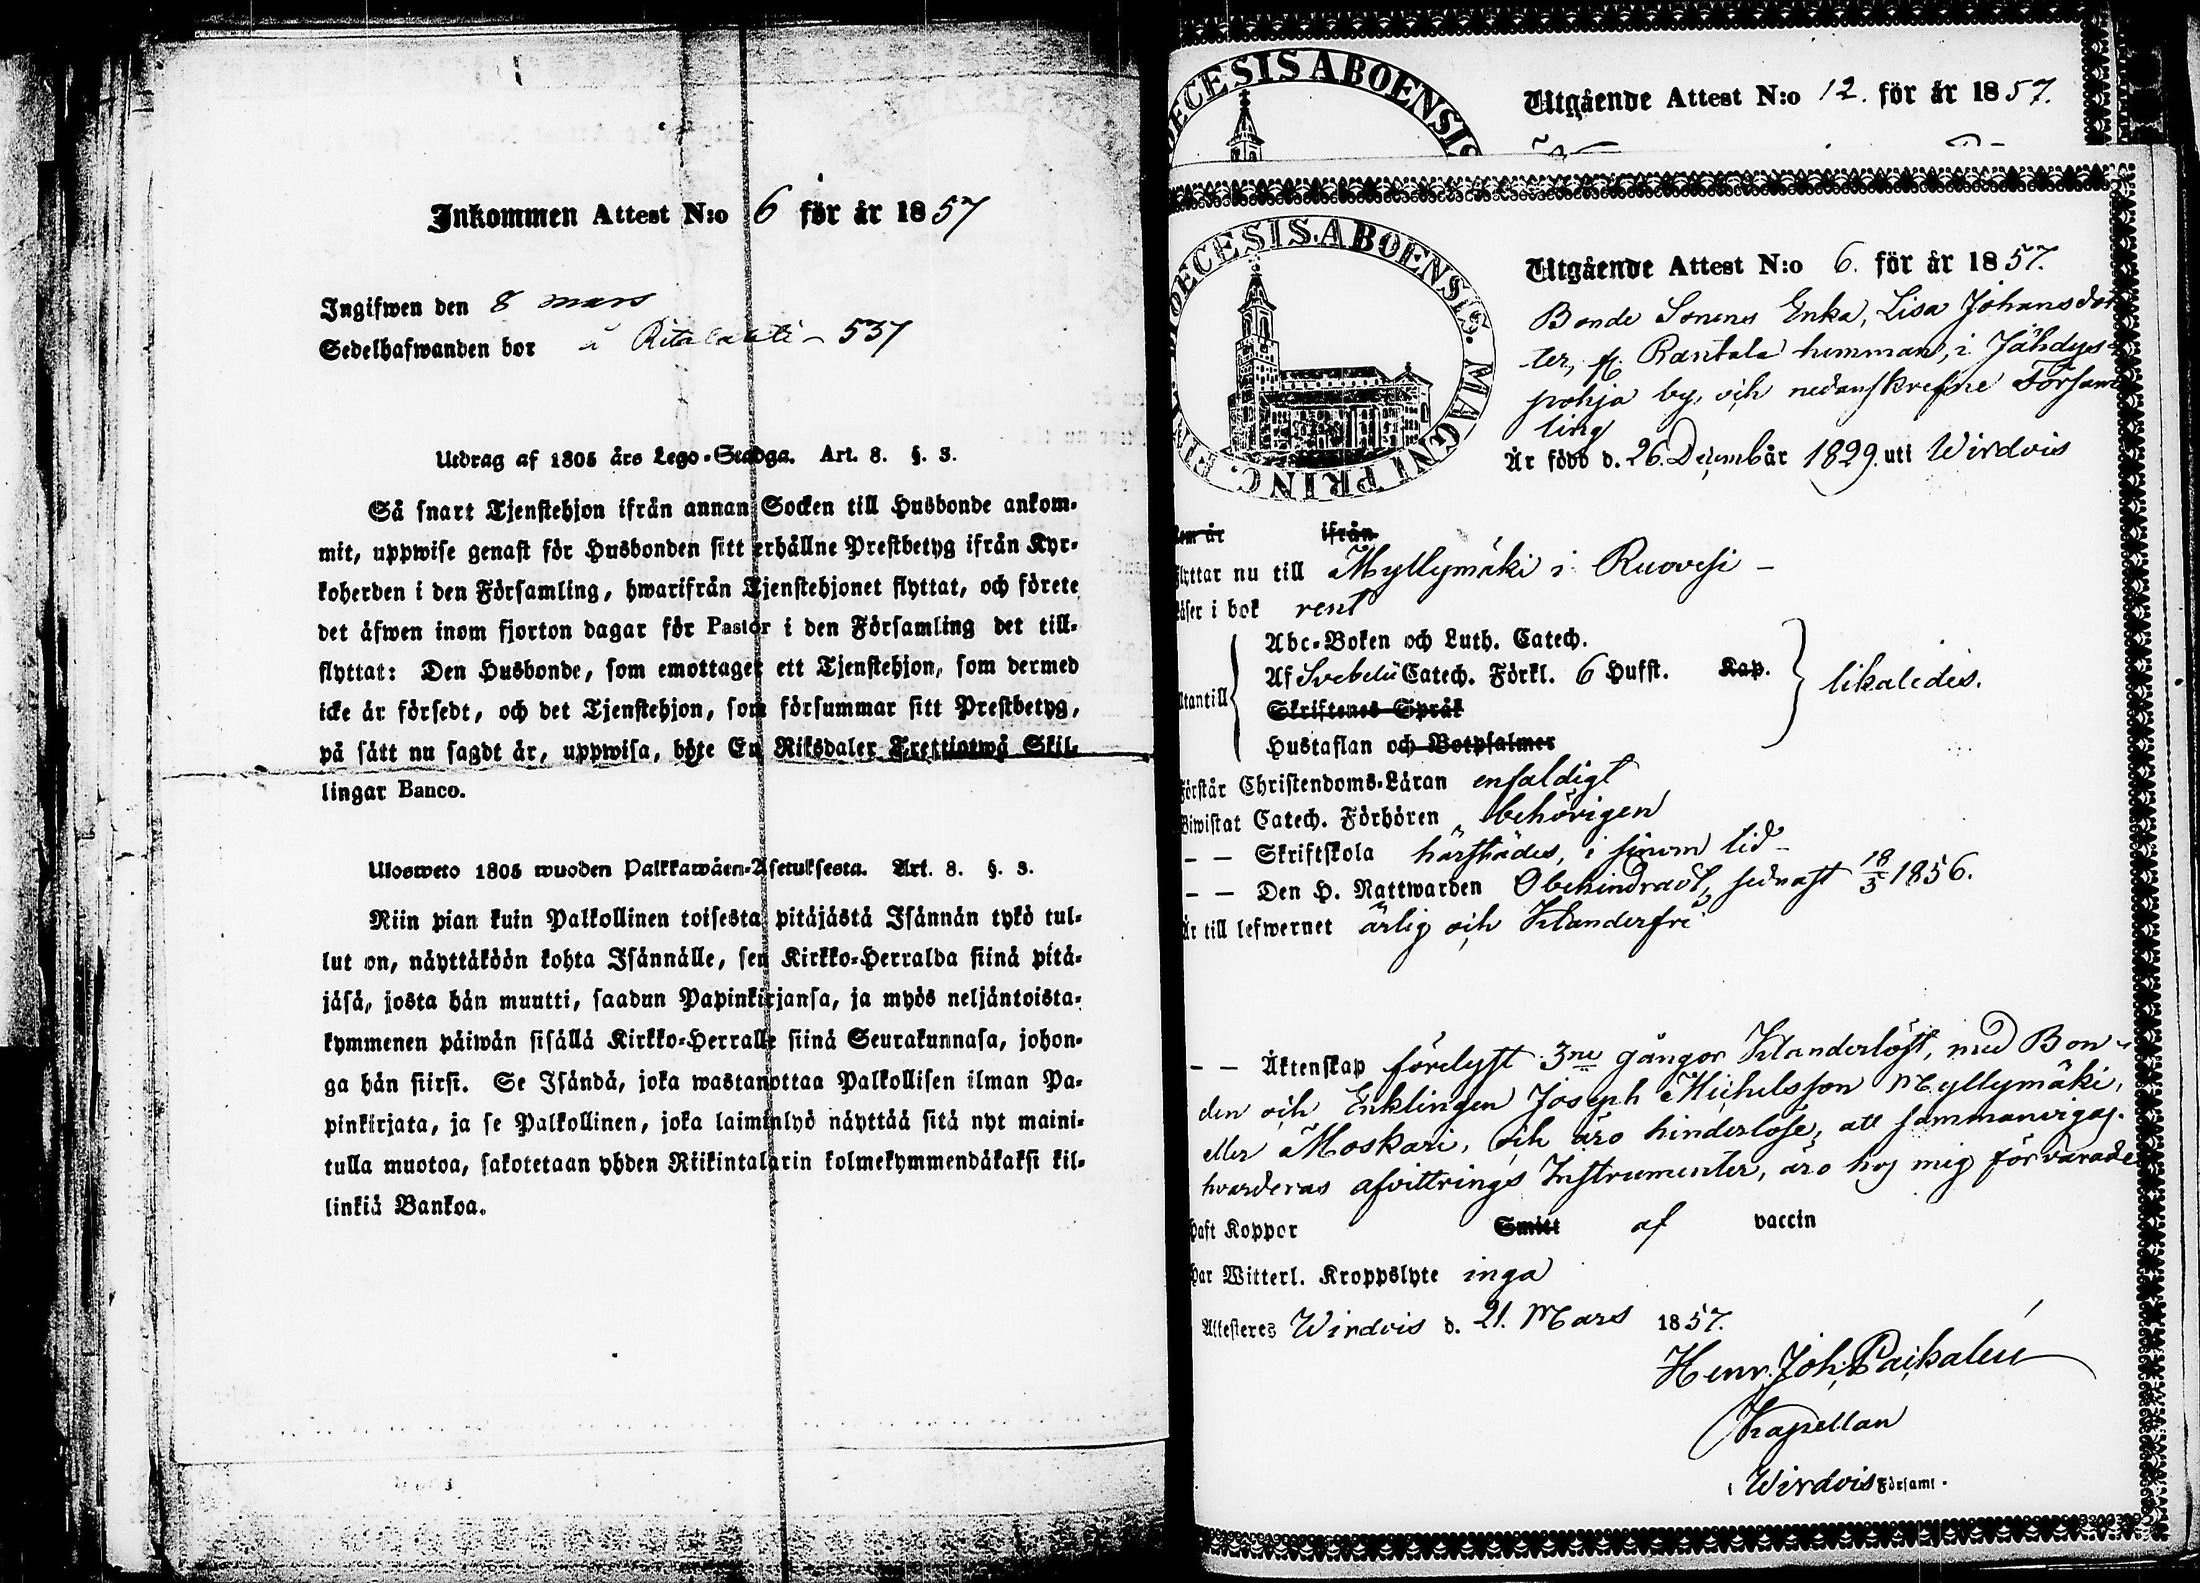 Inkommen Attest N:o 6 för år 1857
Ingifwen den 8 mars
Sedelhafwanden bor å Ritalahti - 537
Utdrag af 1805 års Lego-Stadga. Art. 8. §. 3.
Så snart Tjenstehjon ifrån annan Socken till Husbonde ankom-
mit, uppwise genast för Husbonden sitt erhållne Prestbetyg ifrån Kyr-
koherden i den Församling, hwarifrån Tjenstehjonet flyttat, och förete
det äfwen inom fjorton dagar för Pastor i den Församling det till-
flyttat: Den Husbonde, som emottager ett Tjenstehjon, som dermed
icke är försedt, och det Tjenstehjon, som försummar sitt Prestbetyg,
på sätt nu sagdt är, uppwisa, böte En Riksdaler Trettiotwå Skil-
lingar Banco.
Ulosweto 1805 wuoden Palkkawäen-Asetuksesta. Art. 8. §. 3.
Niin pian kuin Palkollinen toisesta pitäjästä Isännän tykö tul-
lut on, näyttäköön kohta Isännälle, sen Kirkko-Herralda siinä pitä-
jäsä, josta hän muutti, saadun Papinkirjansa, ja myös neljäntoista-
kymmenen päiwän sisällä Kirkko-Herralle siinä Seurakunnasa, johon-
ga hän siirsi. Se Isändä, joka wastanottaa Palkollisen ilman Pa-
pinkirjata, ja se Palkollinen, joka laiminlyö näyttää sitä nyt maini-
tulla muotoa, sakotetaan yhden Riikintalarin kolmekymmendäkaksi kil-
linkiä Bankoa.
DIOECESIS ABOENSIS
Utgående Attest N:o 12. för år 1857.
DIOECESIS. ABOENSIS. MAGNI PRINC. FINL.
Utgående Attest N:o 6. för år 1857.
Bonde Sonens Enka, Lisa Johansdot
ter, fr. Rantala hemman, i Jähdys-
pohja by, och nedanskrefne Försam
ling
Är född d. 26. December 1829. uti Wirdois
Kom år ifrån
Flyttar nu till Myllymäki i Ruovesi -
Läser i bok rent
Utantill
Abc-Boken och Luth. Catech.
Af Svebelii Catech. Förkl. 6 Hufst. Kap.
Skriftenes Språk
Hustaflan och Botpsalmer
likaledes.
Förstår Christendoms-Läran enfaldigt
Biwistat Catech. Förhören behörigen
- - Skriftskola härstädes, i sinom tid -
- - Den H. Nattwarden Obehindradt, sednast 18/5 1856.
Är till lefwernet ärlig och klanderfri
- - Äktenskap förelyst 3ne gångor klanderlöst, med Bon-
den och Enklingen Joseph Michelsson Myllymäki,
eller Moskari, och äro hinderlöse, att sammanvigas.
hvarderas afvittrings Instrumenter, äro hos mig förvarade
Haft Koppor Smitt af vaccin
Har Witterl. Kroppslyte inga
Attesteres Wirdois d. 21. Mars 1857.
Henr. Joh. Paçhalén
Kapellan
i Wirdois Församl.